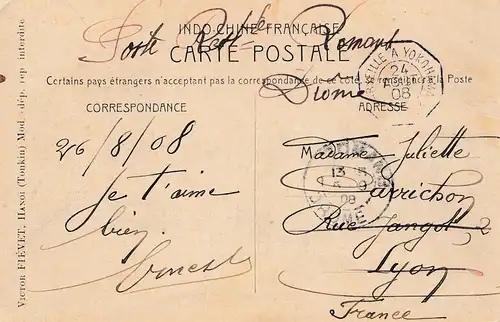 INDO-CHINE FRANÇAISE
Poste Restte Romans
CARTE POSTALE
Certains pays étrangers n'acceptent pas la correspondance de ce côté, se renseigner à la Poste
Drome
CORRESPONDANCE
ADRESSE
26/8/08
Je t'aime
bien
Ernest
Madame Juliette
Carrichon
Rue Jangot 2
Lyon
France
A YOKOHAMA
24
08
13
08
VICTOR FIÉVET, HANOÏ (Tonkin) Mod. dép. rep interdite